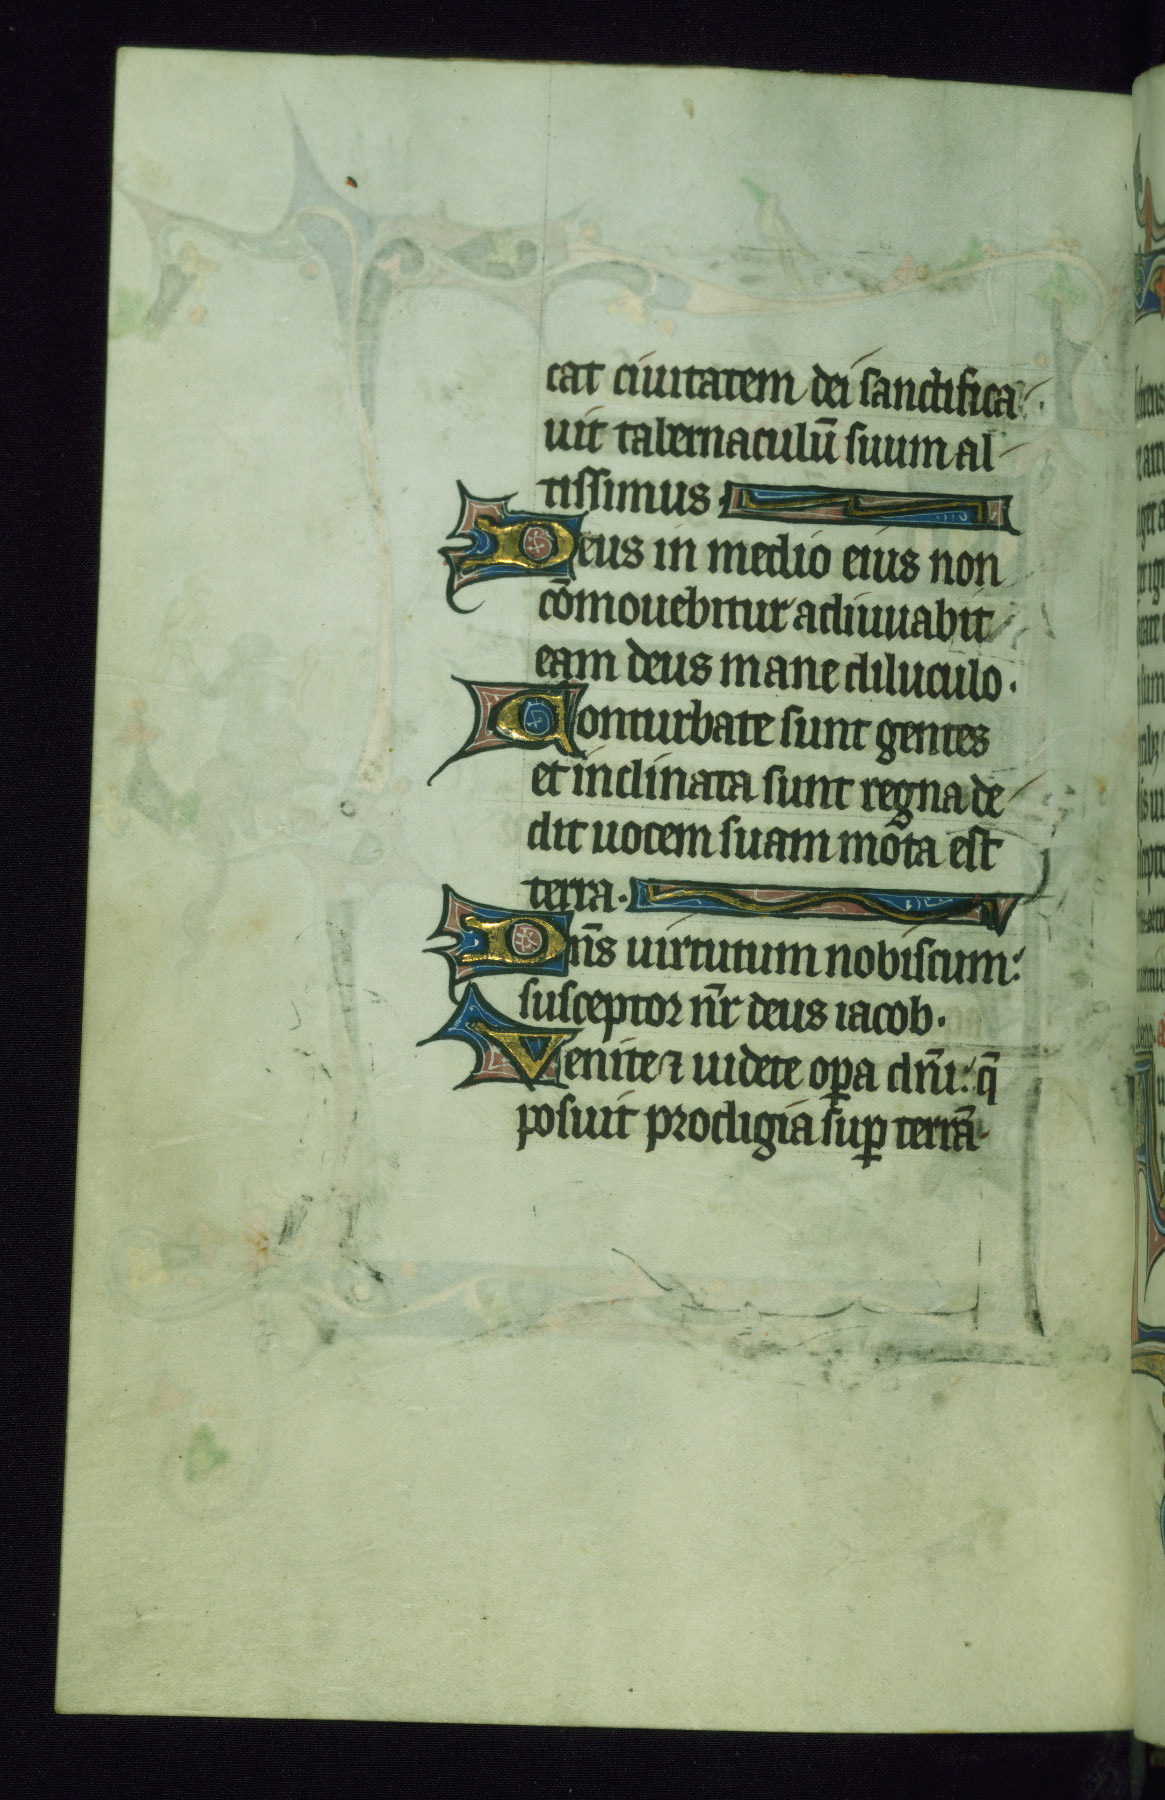 cat ciuitatem dei sanctifica
uit tabernaculū suum al
tissimus
Deus in medio eius non
cōmouebitur adiuuabit
eam deus mane diluculo.
Conturbate sunt gentes
et inclinata sunt regna de
dit uocem suam mōta est
terra.
Dn̄s uirtutum nobiscum:
susceptor nr̄ deus iacob.
Venite ⁊ uidete oꝑa dn̄i: q̄
posuit prodigia suꝑ terrā